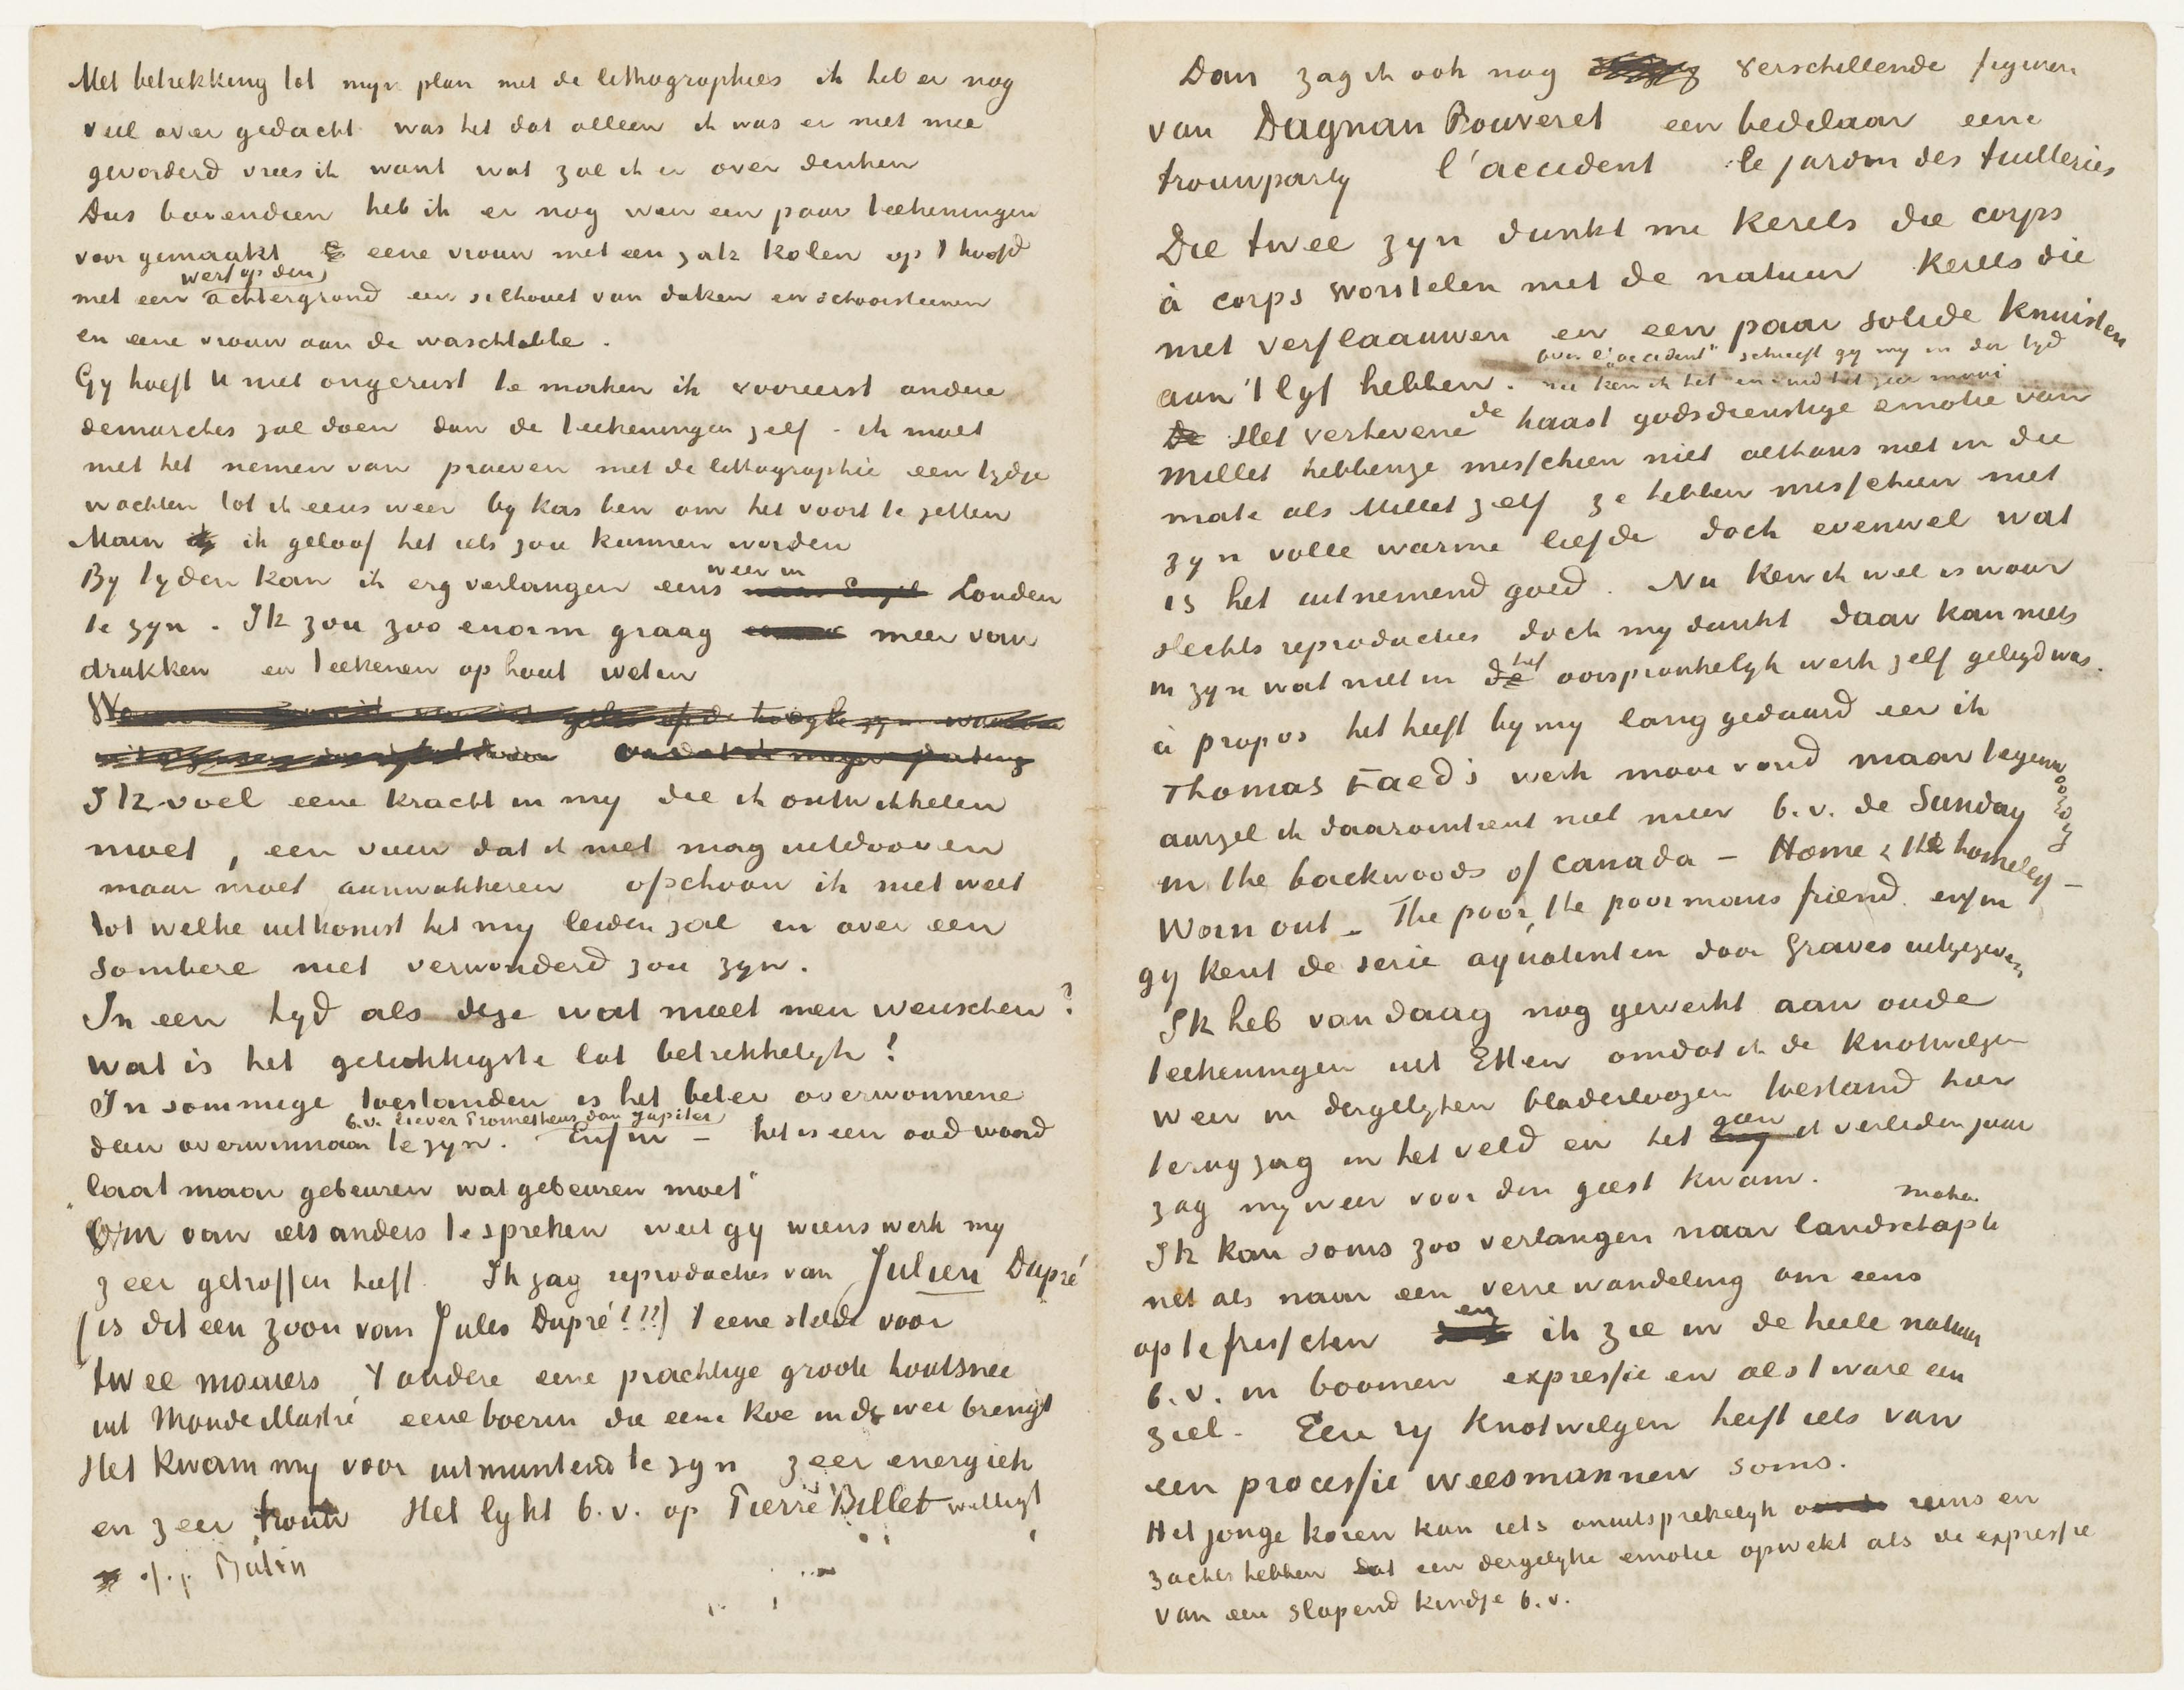 Met betrekking tot mijn plan met de lithographies ik heb er nog
veel over gedacht was het dat alleen ik was er niet mee
gevorderd vrees ik want wat zal ik er over denken
Dus bovendien heb ik er nog weer een paar teekeningen
voor gemaakt eene vrouw met een zak kolen op 't hoofd
werf op den
met een achtergrond een silhouet van daken en schoorsteenen
en eene vrouw aan de waschtobbe.
Gy hoeft U niet ongerust te maken ik vooreerst andere
demarches zal doen dan de teekeningen zelf - ik moet
met het nemen van proeven met de lithographie een tydje
wachten tot ik eens weer by kas ben om het voort te zetten
Maar ik geloof het iets zou kunnen worden
By tyden kan ik erg verlangen eens weer in Londen
te zyn. Ik zou zoo enorm graag meer van
drukken en teekenen op hout weten
Ik voel eene kracht in my die ik ontwikkelen
moet, een vuur dat ik niet mag uitdooven
maar moet aanwakkeren ofschoon ik niet weet
tot welke uitkomst het my leiden zal en over een
sombere niet verwonderd zou zyn.
In een tyd als deze wat moet men wenschen?
wat is het gelukkigste lot betrekkelyk?
In sommige toestanden is het beter overwonnene
b.v. liever Prometheus dan Jupiter
dan overwinnaar te zyn. Enfin - het is een oud woord
"laat maar gebeuren wat gebeuren moet"
Om van iets anders te spreken weet gy wiens werk my
zeer getroffen heeft. Ik zag reproducties van Julien Dupré
(is dit een zoon van Jules Dupré???) 't eene stelde voor
twee maaiers, 't andere eene prachtige groote houtsnee
uit Monde illustré eene boerin die eene koe in de wei brengt
Het kwam my voor uitmuntend te zyn zeer energiek
en zeer trouw Het lykt b.v. op Pierre Billet welligt
of op Butin
Dan zag ik ook nog verschillende figuren
van Dagnan Bouveret een bedelaar eene
trouwparty l'accident le jardin des tuilleries
Die twee zyn dunkt me kerels die corps
à corps worstelen met de natuur kerels die
niet verflaauwen en een paar solide knuisten
over l'accident" schreeft gy my in der tyd
aan 't lyf hebben. nu ken ik het en vind het zeer mooi
Het verhevene de haast godsdienstige emotie van
Millet hebben ze misschien niet althans niet in die
mate als Millet zelf ze hebben misschien niet
zyn volle warme liefde doch evenwel wat
is het uitnemend goed. Nu ken ik wel is waar
slechts reproducties doch my dunkt daar kan niets
in zyn wat niet in het oorspronkelyk werk zelf gelegd was.
à propos het heeft by my lang geduurd eer ik
Thomas Faed's werk mooi vond maar tegenwoordig
aarzel ik daaromtrent niet meer b.v. de Sunday
in the backwoods of Canada - Home & the homeless -
Worn out - The poor, the poor mans friend. enfin
gy kent de serie aquatinten door Graves uitgegeven
Ik heb vandaag nog gewerkt aan oude
teekeningen uit Etten omdat ik de knotwilgen
weer in dergelyken bladerloozen toestand hier
terug zag in het veld en het geen ik verleden jaar
zag my weer voor den geest kwam.
maken
Ik kan soms zoo verlangen naar landschap
net als naar een verre wandeling om eens
op te frisschen en ik zie in de heele natuur
b.v. in boomen expressie en als 't ware een
ziel. Een ry knotwilgen heeft iets van
een processie weesmannen soms.
Het jonge koren kan iets onuitsprekelyk reins en
zachts hebben dat een dergelyke emotie opwekt als de expressie
van een slapend kindje b.v.